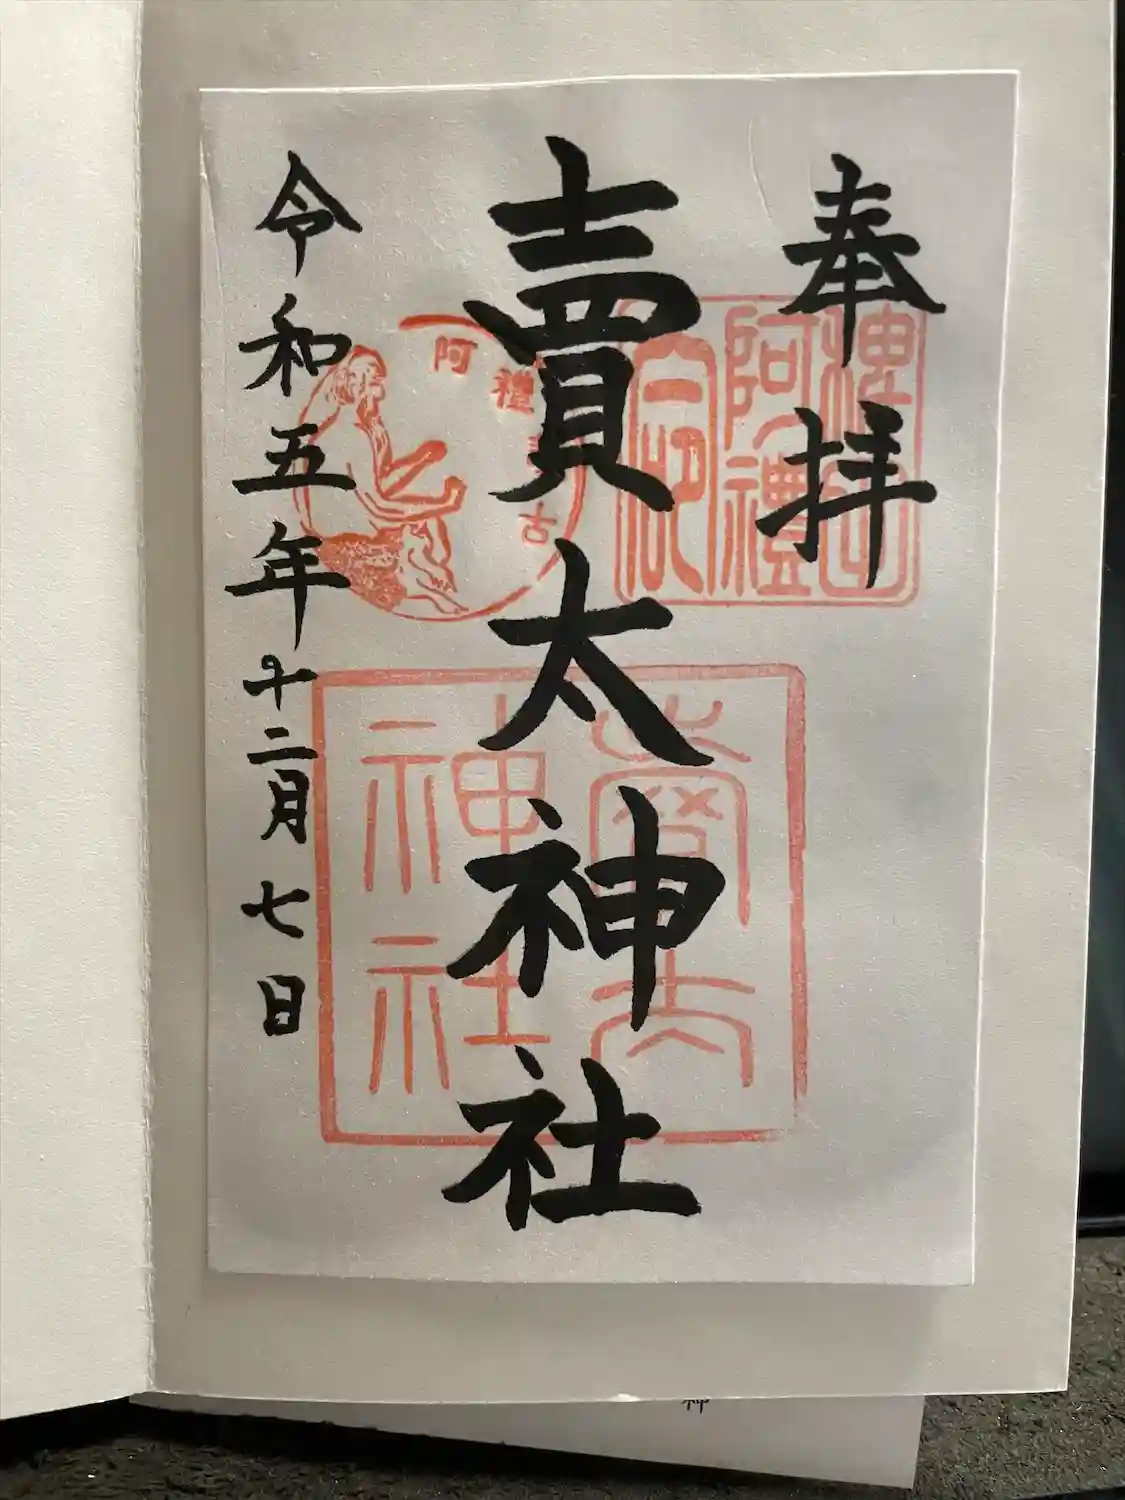 奉拝
賣太神社
令和五年十二月七日
稗田
阿禮
神社
阿禮
古
神